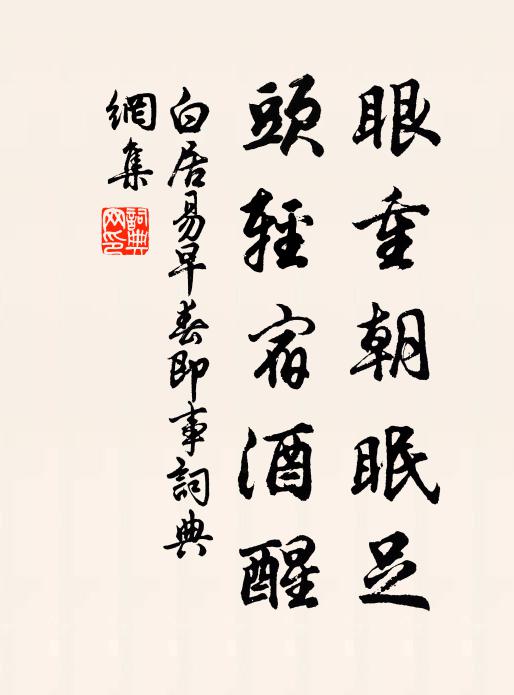 眼重朝眠足
頭輕宿酒醒
白居易早春即事詞典
網集
詞典网印